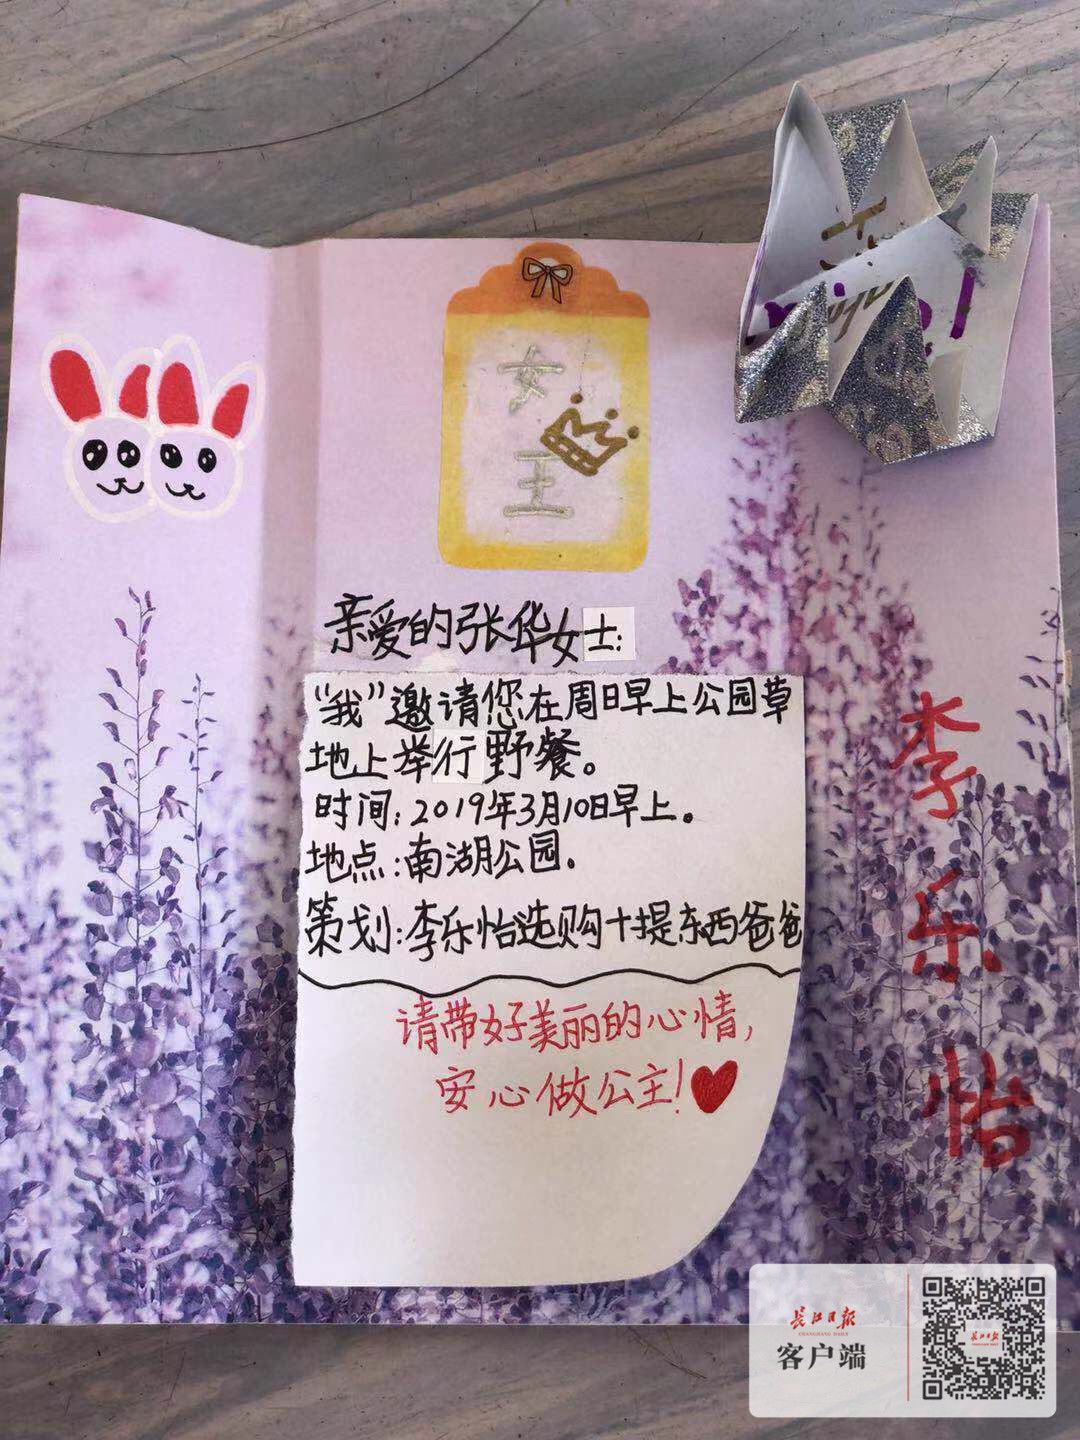 女
王
亲爱的张华女士：
“我”邀请您在周日早上公园草
地上举行野餐。
时间：2019年3月10日早上。
地点：南湖公园。
策划：李乐怡选购+提东西爸爸
请带好美丽的心情，
安心做公主！
李
乐
怡
长江日报
CHANGJIANG DAILY
客户端
长江日报